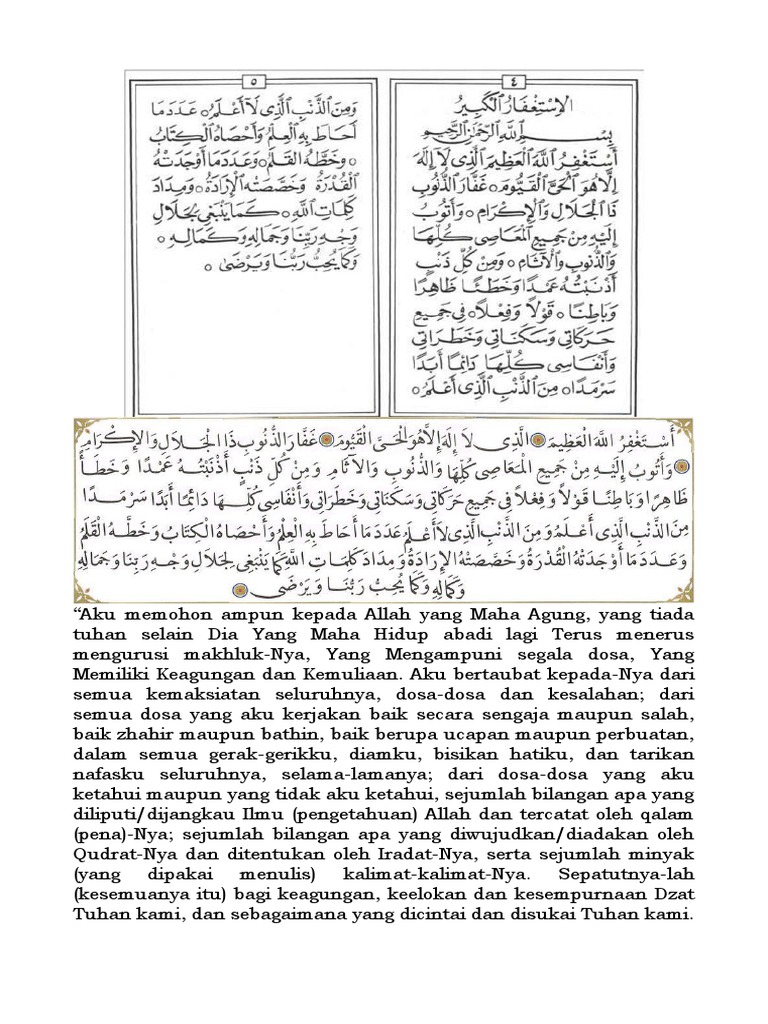 ٤
الإِسْتِغْفَارُ الْكَبِيرُ
بِسْمِ اللَّهِ الرَّحْمٰنِ الرَّحِيمِ
أَسْتَغْفِرُ اللَّهَ الْعَظِيمَ الَّذِى لَآ إِلَهَ
إِلَّا هُوَ الْحَىَّ الْقَيُّومَ ۝ غَفَّارَ الذُّنُوبِ
ذَا الْجَلَالِ وَالْإِكْرَامِ ۝ وَأَتُوبُ
إِلَيْهِ مِنْ جَمِيعِ الْمَعَاصِى كُلِّهَا
وَالذُّنُوبِ وَالْآثَامِ ۝ وَمِنْ كُلِّ ذَنْبٍ
أَذْنَبْتُهُ عَمْدًا وَخَطَئًا ظَاهِرًا
وَبَاطِنًا ۝ قَوْلًا وَفِعْلًا ۝ فِى جَمِيعِ
حَرَكَاتِى وَسَكَنَاتِى وَخَطَرَاتِى
وَأَنْفَاسِى كُلِّهَا دَائِمًا أَبَدًا
سَرْمَدًا ۝ مِنَ الذَّنْبِ الَّذِى أَعْلَمُ ۝
٥
وَمِنَ الذَّنْبِ الَّذِى لَآ أَعْلَمُ ۝ عَدَدَ مَا
أَحَاطَ بِهِ الْعِلْمُ وَأَحْصَاهُ الْكِتَابُ
۝ وَخَطَّهُ الْقَلَمُ ۝ وَعَدَدَ مَا أَوْجَدَتْهُ
الْقُدْرَةُ وَخَصَّصَتْهُ الْإِرَادَةُ ۝ وَمِدَادَ
كَلِمَاتِ اللَّهِ ۝ كَمَا يَنْبَغِى لِجَلَالِ
وَجْهِ رَبِّنَا وَجَمَالِهِ وَكَمَالِهِ ۝
وَكَمَا يُحِبُّ رَبُّنَا وَيَرْضَىٰ ۝
أَسْتَغْفِرُ اللَّهَ الْعَظِيمَ ۝ الَّذِي لَا إِلَهَ إِلَّا هُوَ الْحَيَّ الْقَيُّومَ ۝ غَفَّارَ الذُّنُوبِ ذَا الْجَلَالِ وَالْإِكْرَامِ
۝ وَأَتُوبُ إِلَيْهِ مِنْ جَمِيعِ الْمَعَاصِي كُلِّهَا وَالذُّنُوبِ وَالْآثَامِ وَمِنْ كُلِّ ذَنْبٍ أَذْنَبْتُهُ عَمْدًا وَخَطَأً
ظَاهِرًا وَبَاطِنًا قَوْلًا وَفِعْلًا فِي جَمِيعِ حَرَكَاتِي وَسَكَنَاتِي وَخَطَرَاتِي وَأَنْفَاسِي كُلِّهَا دَائِمًا أَبَدًا سَرْمَدًا
مِنَ الذَّنْبِ الَّذِي أَعْلَمُ وَمِنَ الذَّنْبِ الَّذِي لَا أَعْلَمُ عَدَدَ مَا أَحَاطَ بِهِ الْعِلْمُ وَأَحْصَاهُ الْكِتَابُ وَخَطَّهُ الْقَلَمُ
وَعَدَدَ مَا أَوْجَدَتْهُ الْقُدْرَةُ وَخَصَّصَتْهُ الْإِرَادَةُ وَمِدَادَ كَلِمَاتِ اللَّهِ كَمَا يَنْبَغِي لِجَلَالِ وَجْهِ رَبِّنَا وَجَمَالِهِ
وَكَمَالِهِ وَكَمَا يُحِبُّ رَبُّنَا وَيَرْضَى ۝
“Aku memohon ampun kepada Allah yang Maha Agung, yang tiada
tuhan selain Dia Yang Maha Hidup abadi lagi Terus menerus
mengurusi makhluk-Nya, Yang Mengampuni segala dosa, Yang
Memiliki Keagungan dan Kemuliaan. Aku bertaubat kepada-Nya dari
semua kemaksiatan seluruhnya, dosa-dosa dan kesalahan; dari
semua dosa yang aku kerjakan baik secara sengaja maupun salah,
baik zhahir maupun bathin, baik berupa ucapan maupun perbuatan,
dalam semua gerak-gerikku, diamku, bisikan hatiku, dan tarikan
nafasku seluruhnya, selama-lamanya; dari dosa-dosa yang aku
ketahui maupun yang tidak aku ketahui, sejumlah bilangan apa yang
diliputi/dijangkau Ilmu (pengetahuan) Allah dan tercatat oleh qalam
(pena)-Nya; sejumlah bilangan apa yang diwujudkan/diadakan oleh
Qudrat-Nya dan ditentukan oleh Iradat-Nya, serta sejumlah minyak
(yang dipakai menulis) kalimat-kalimat-Nya. Sepatutnya-lah
(kesemuanya itu) bagi keagungan, keelokan dan kesempurnaan Dzat
Tuhan kami, dan sebagaimana yang dicintai dan disukai Tuhan kami.